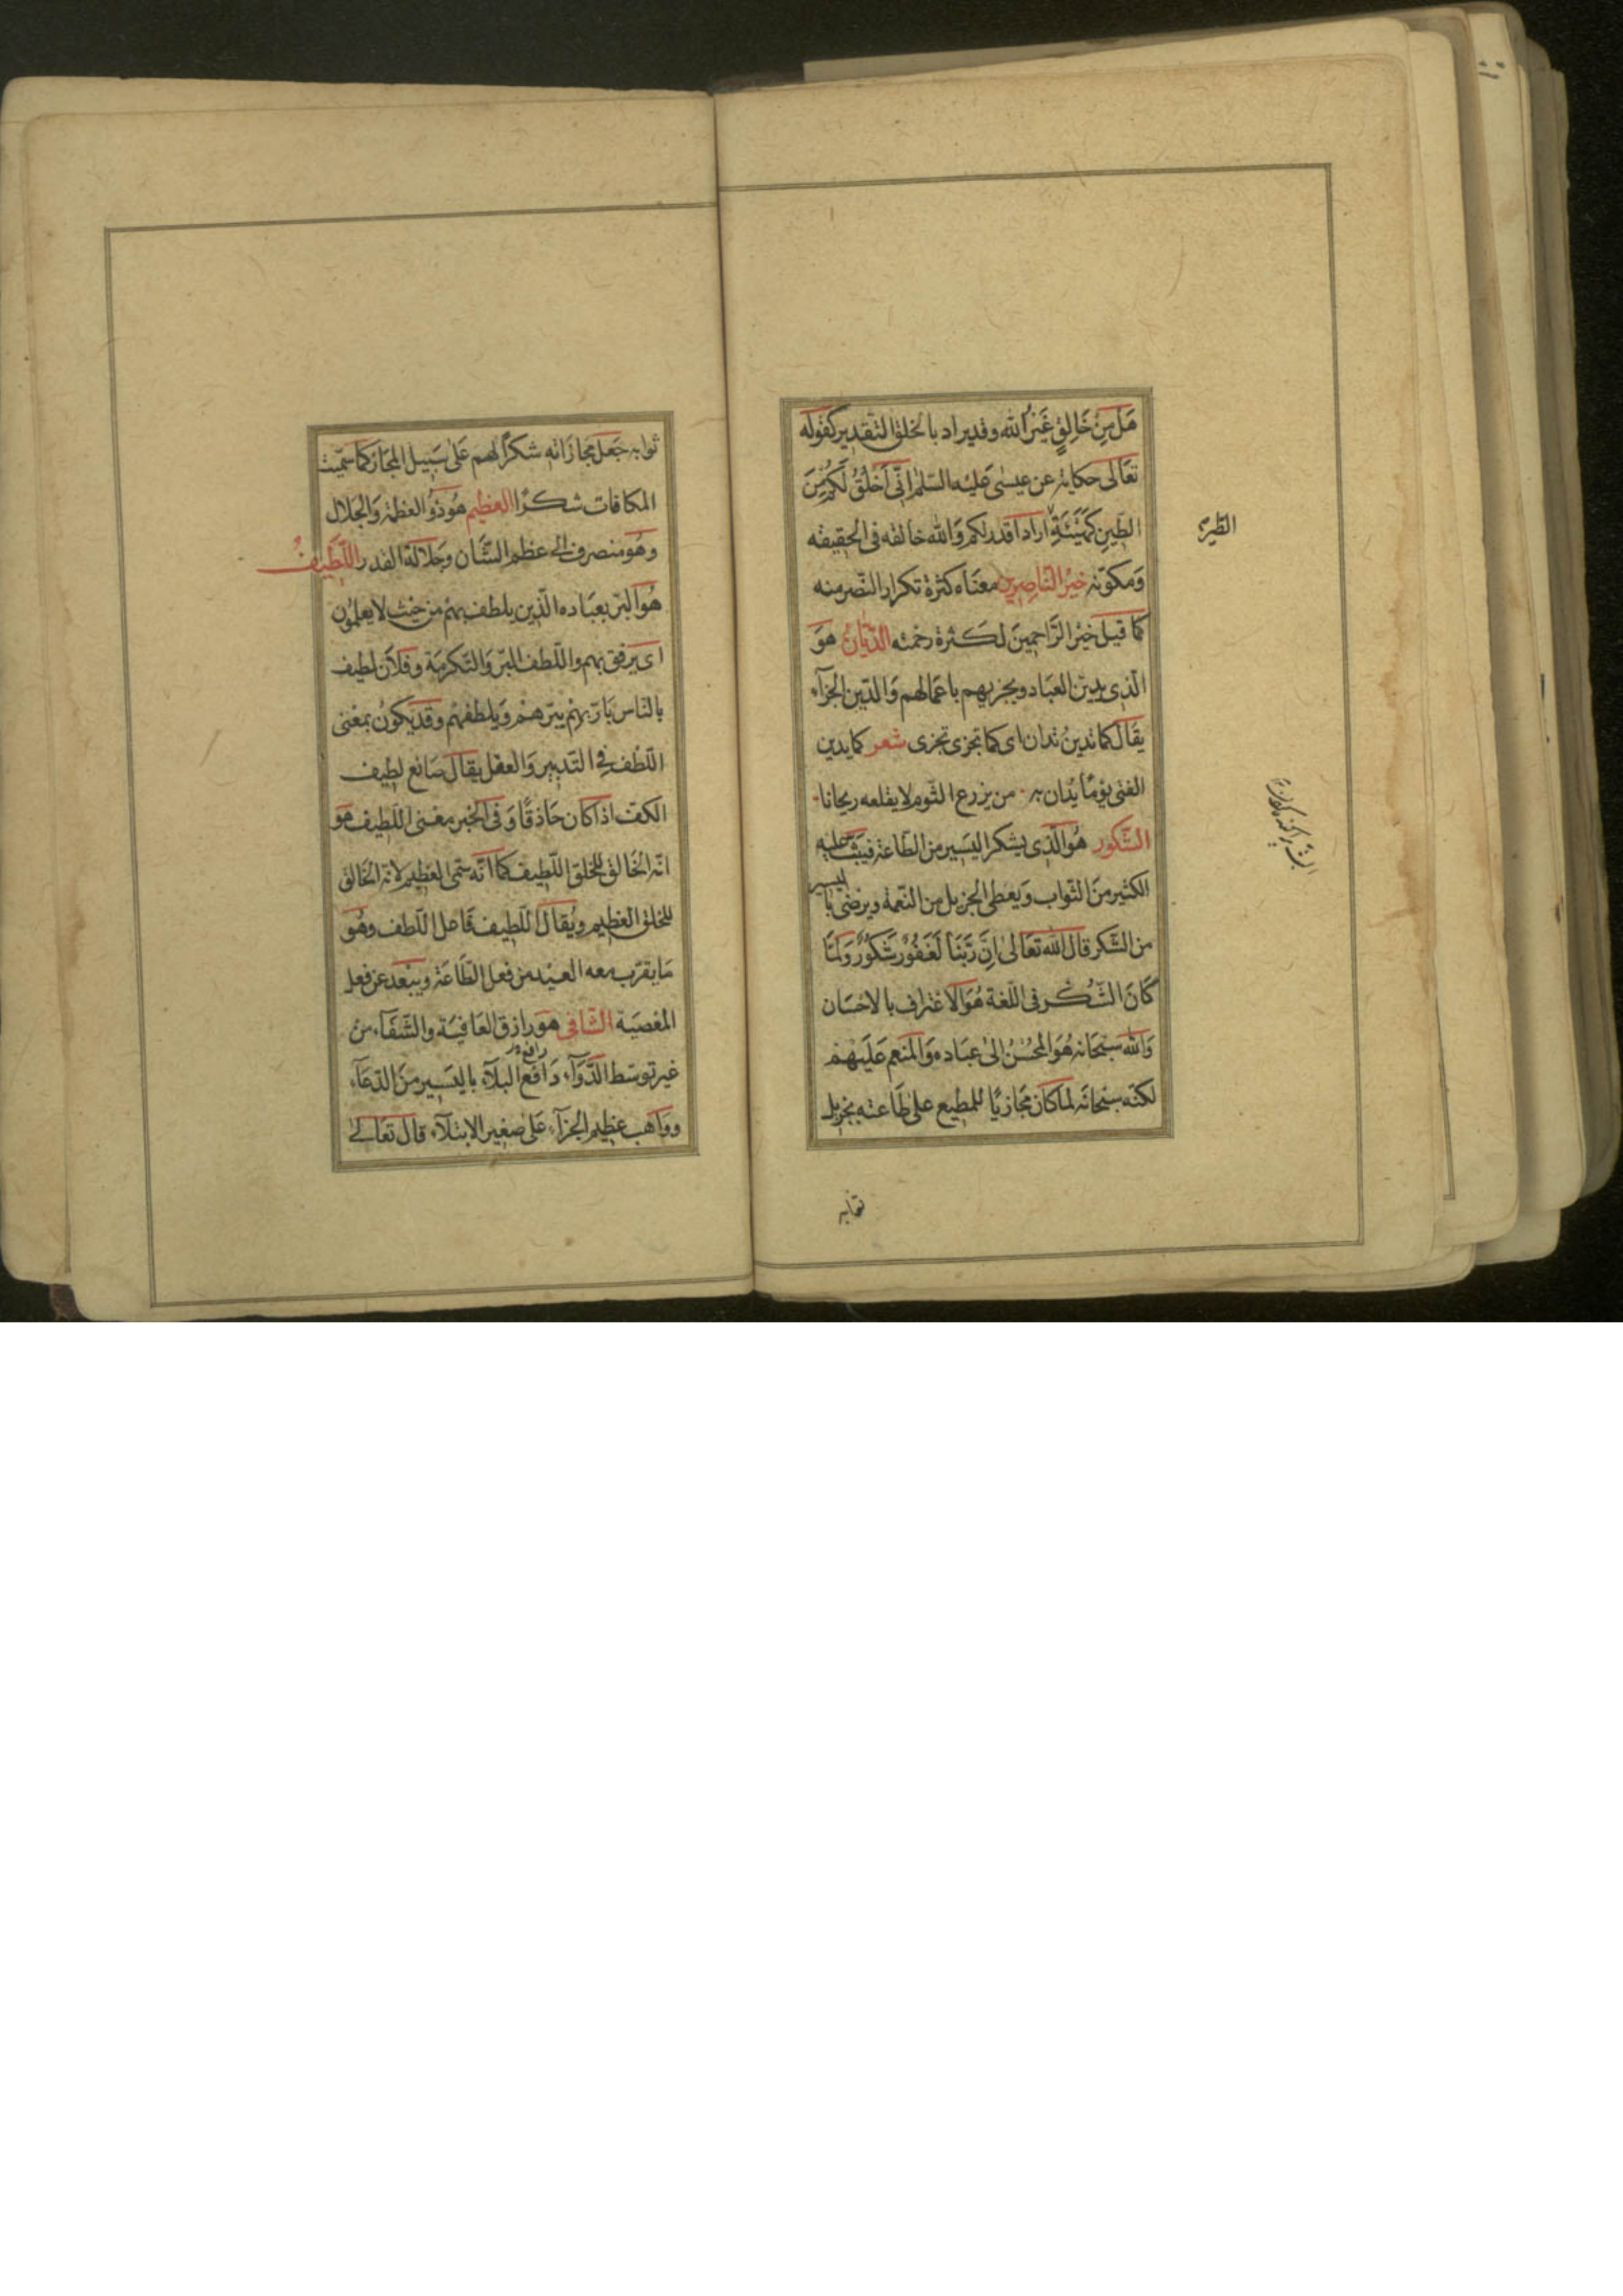 هَل مِنْ خَالِقٍ غَيْرُ الله وقد يراد بالخلق التقدير كقوله
تعَالى حكاية عن عيسٰى عليه السّلم اِنّى اَخْلُقُ لَكُمْ مِنَ
الطّينِ كَهَيْئَةِ اراد اقدر لكم وَالله خالقه فى الحقيقه
الطّيرِ
وَمكوّنه خيْرُ النّاصِرين معنَاه كثرة تكرار النّصر منه
كما قيل خيْر الرّاحِمِينَ لكثرة رحمته الدّيّانُ هوَ
الّذى يدين العبَاد ويجزيهم باعمالهم وَالدّين الجزآء
يقَال كما تدينُ تدان اى كما تجزى تجزى شعر كما يدين
الفتى يوْمًا يُدان به من يزرع الثّوم لا يقلعه ريحانا
الشّكور هُوَ الّذى يشكر اليَسِير من الطّاعة فيثيب عليه
الكثير منَ الثّواب وَيعطى الجزيل من النّعمة ويرضى باليسير
من الشّكر قال الله تعَالىٰ اِنَّ رَبَّنَا لَغَفُوْرٌ شَكُوْرٌ وَلمّا
كَانَ الشّكر فى اللّغة هُوَ الاعتراف بالاحسَان
وَالله سبْحَانه هُوَ المحْسنُ الىٰ عبَاده وَالمنعم عَليهم
لكنّه سبْحَانَه لما كان مجَازيًا للمطيع على طَاعته بجزيل
ثوابه
ثوابه جَعل مجازاته شكرًا لهم عَلى سَبيل المجَاز كما سمّيت
المكافات شكرًا العظيم هُوَ ذُو العظمة وَالجَلال
وهُو منصرف الى عظم الشّان وجَلالة القدر اللّطيفُ
هُوَ البَرّ بعبَاده الّذين يلطف بهمْ من حَيْث لا يعلمُون
اى يرفق بهم واللّطف البرّ وَالتّكرمَة وفلان لطيف
بالنّاس بَارّ بهمْ يبرّهمْ وَيلطفهمْ وقد يكونُ بمعْنى
اللّطف فى التّدبير وَالعقل يقال صَانع لطيف
الكفّ اذا كان حَاذقًا وَفى الخبر معْنى اللّطيف هوَ
انّه الخالق للخلق اللّطيف كما انّه سمّى العَظيم لانه الخالق
للخلق العظيم ويُقال اللّطيف فَاعل اللّطف وهُوَ
مَا يقرّب معه العبد من فعل الطّاعَة ويبْعد عن فعل
المعْصيَة الشّافى هوَ رازق العَافيَة والشّفَآء منْ
غير توسّط الدّوَآء دَافع البلآء باليَسير منَ الدّعآء
رافع
ووَاهب عظيم الجزآء عَلىٰ صغير الابتلآء قال تعَالى